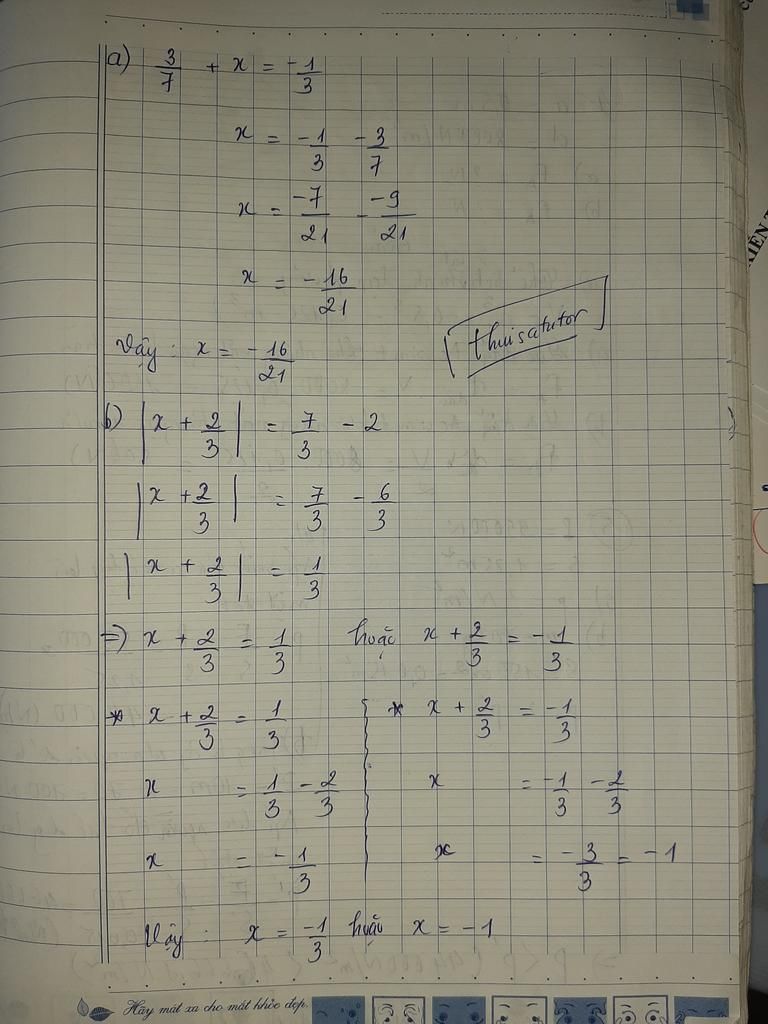 a) 3/7 + x = -1/3
x = -1/3 - 3/7
x = -7/21 - -9/21
x = -16/21
thuisatutor
Vậy : x = -16/21
b) |x + 2/3| = 7/3 - 2
|x + 2/3| = 7/3 - 6/3
|x + 2/3| = 1/3
=) x + 2/3 = 1/3 hoặc x + 2/3 = -1/3
* x + 2/3 = 1/3 * x + 2/3 = -1/3
x = 1/3 - 2/3 x = -1/3 - 2/3
x = -1/3 x = -3/3 = -1
Vậy : x = -1/3 hoặc x = -1
Hãy mát xa cho mắt khỏe đẹp.